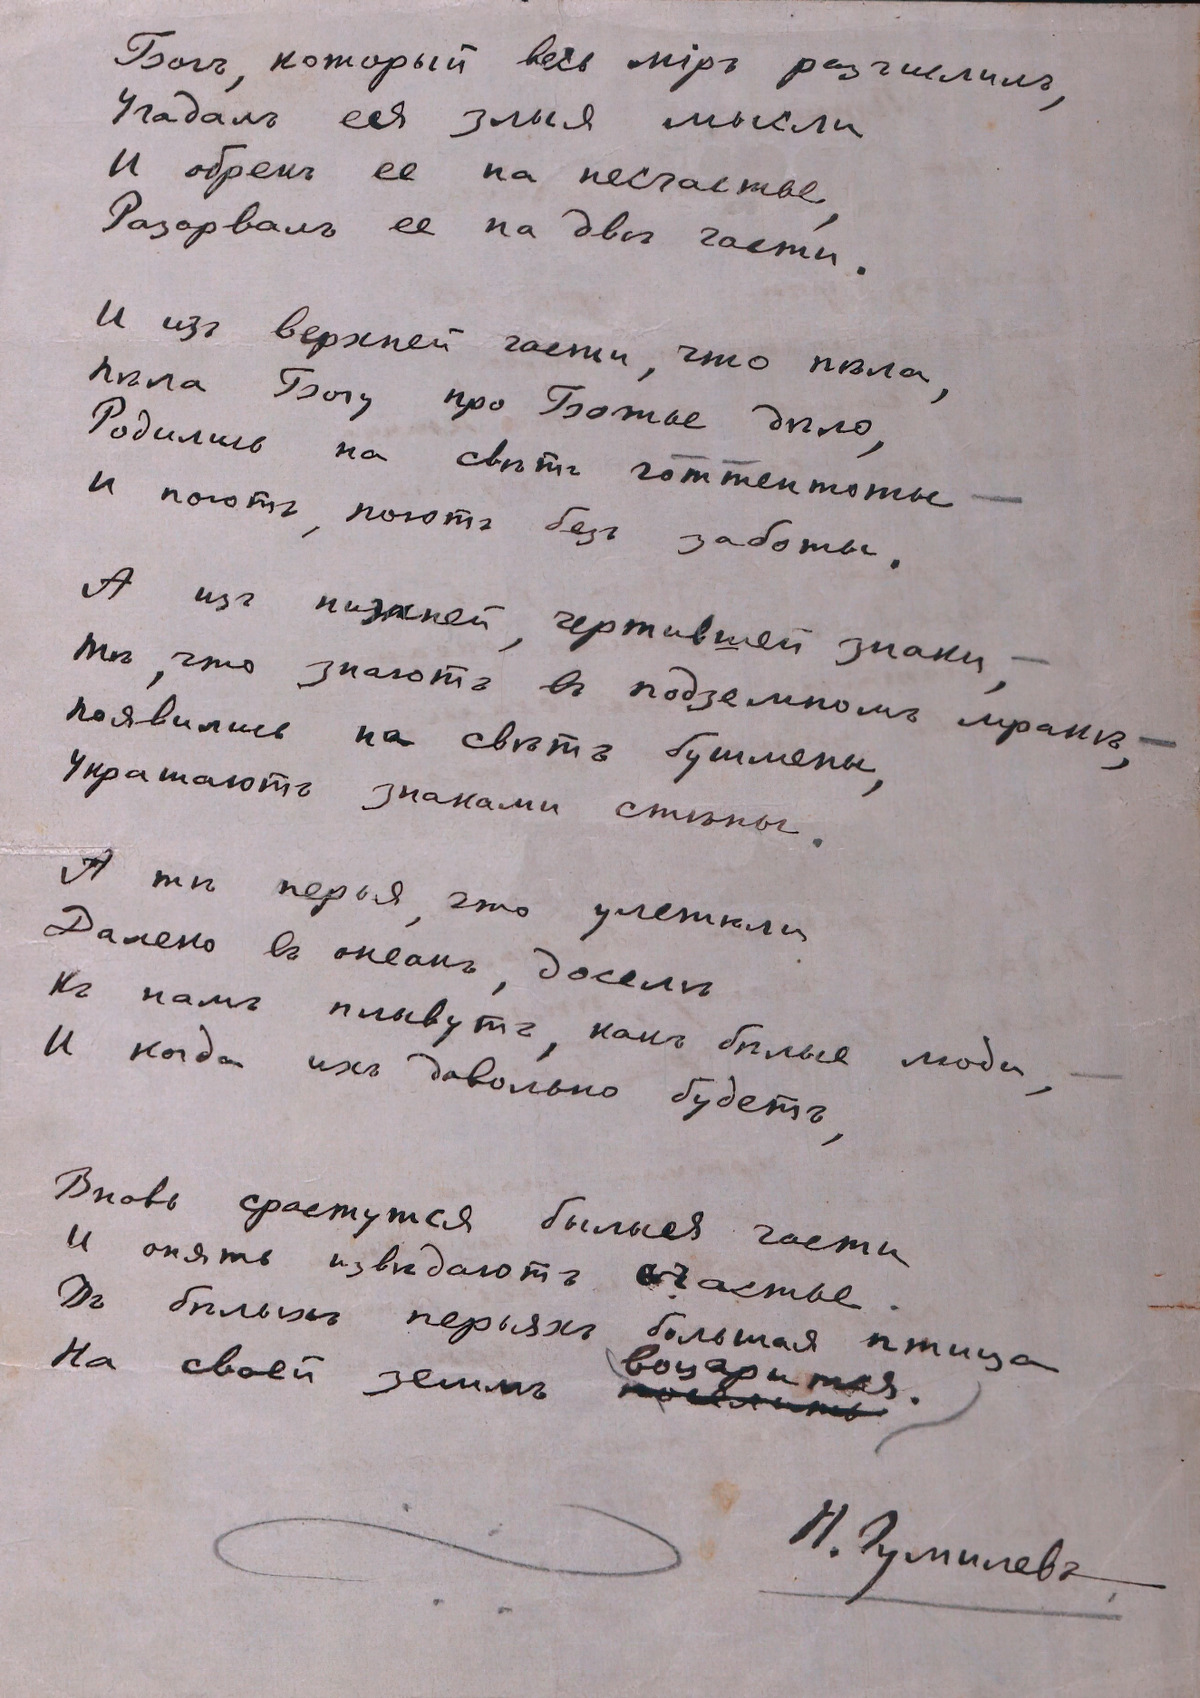 Богъ, который весь міръ разчислилъ,
Угадалъ ея злыя мысли
И обрекъ ее на несчастье,
Разорвалъ ее на двѣ части.
И изъ верхней части, что пѣла,
Пѣла Богу про Божье дѣло,
Родились на свѣтъ готтентоты —
И поютъ, поютъ безъ заботы.
А изъ нижней, чертившей знаки, —
Тѣ, что знаютъ въ подземномъ мракѣ, —
Появились на свѣтъ бушмены,
Украшаютъ знаками стѣны.
А тѣ перья, что улетѣли
Далеко въ океанъ, доселѣ
Къ намъ плывутъ, какъ бѣлые люди, —
И когда ихъ довольно будетъ,
Вновь срастутся былыя части
И опять извѣдаютъ счастье.
Въ бѣлыхъ перьяхъ большая птица
На своей землѣ воцарится.
Н. Гумилевъ